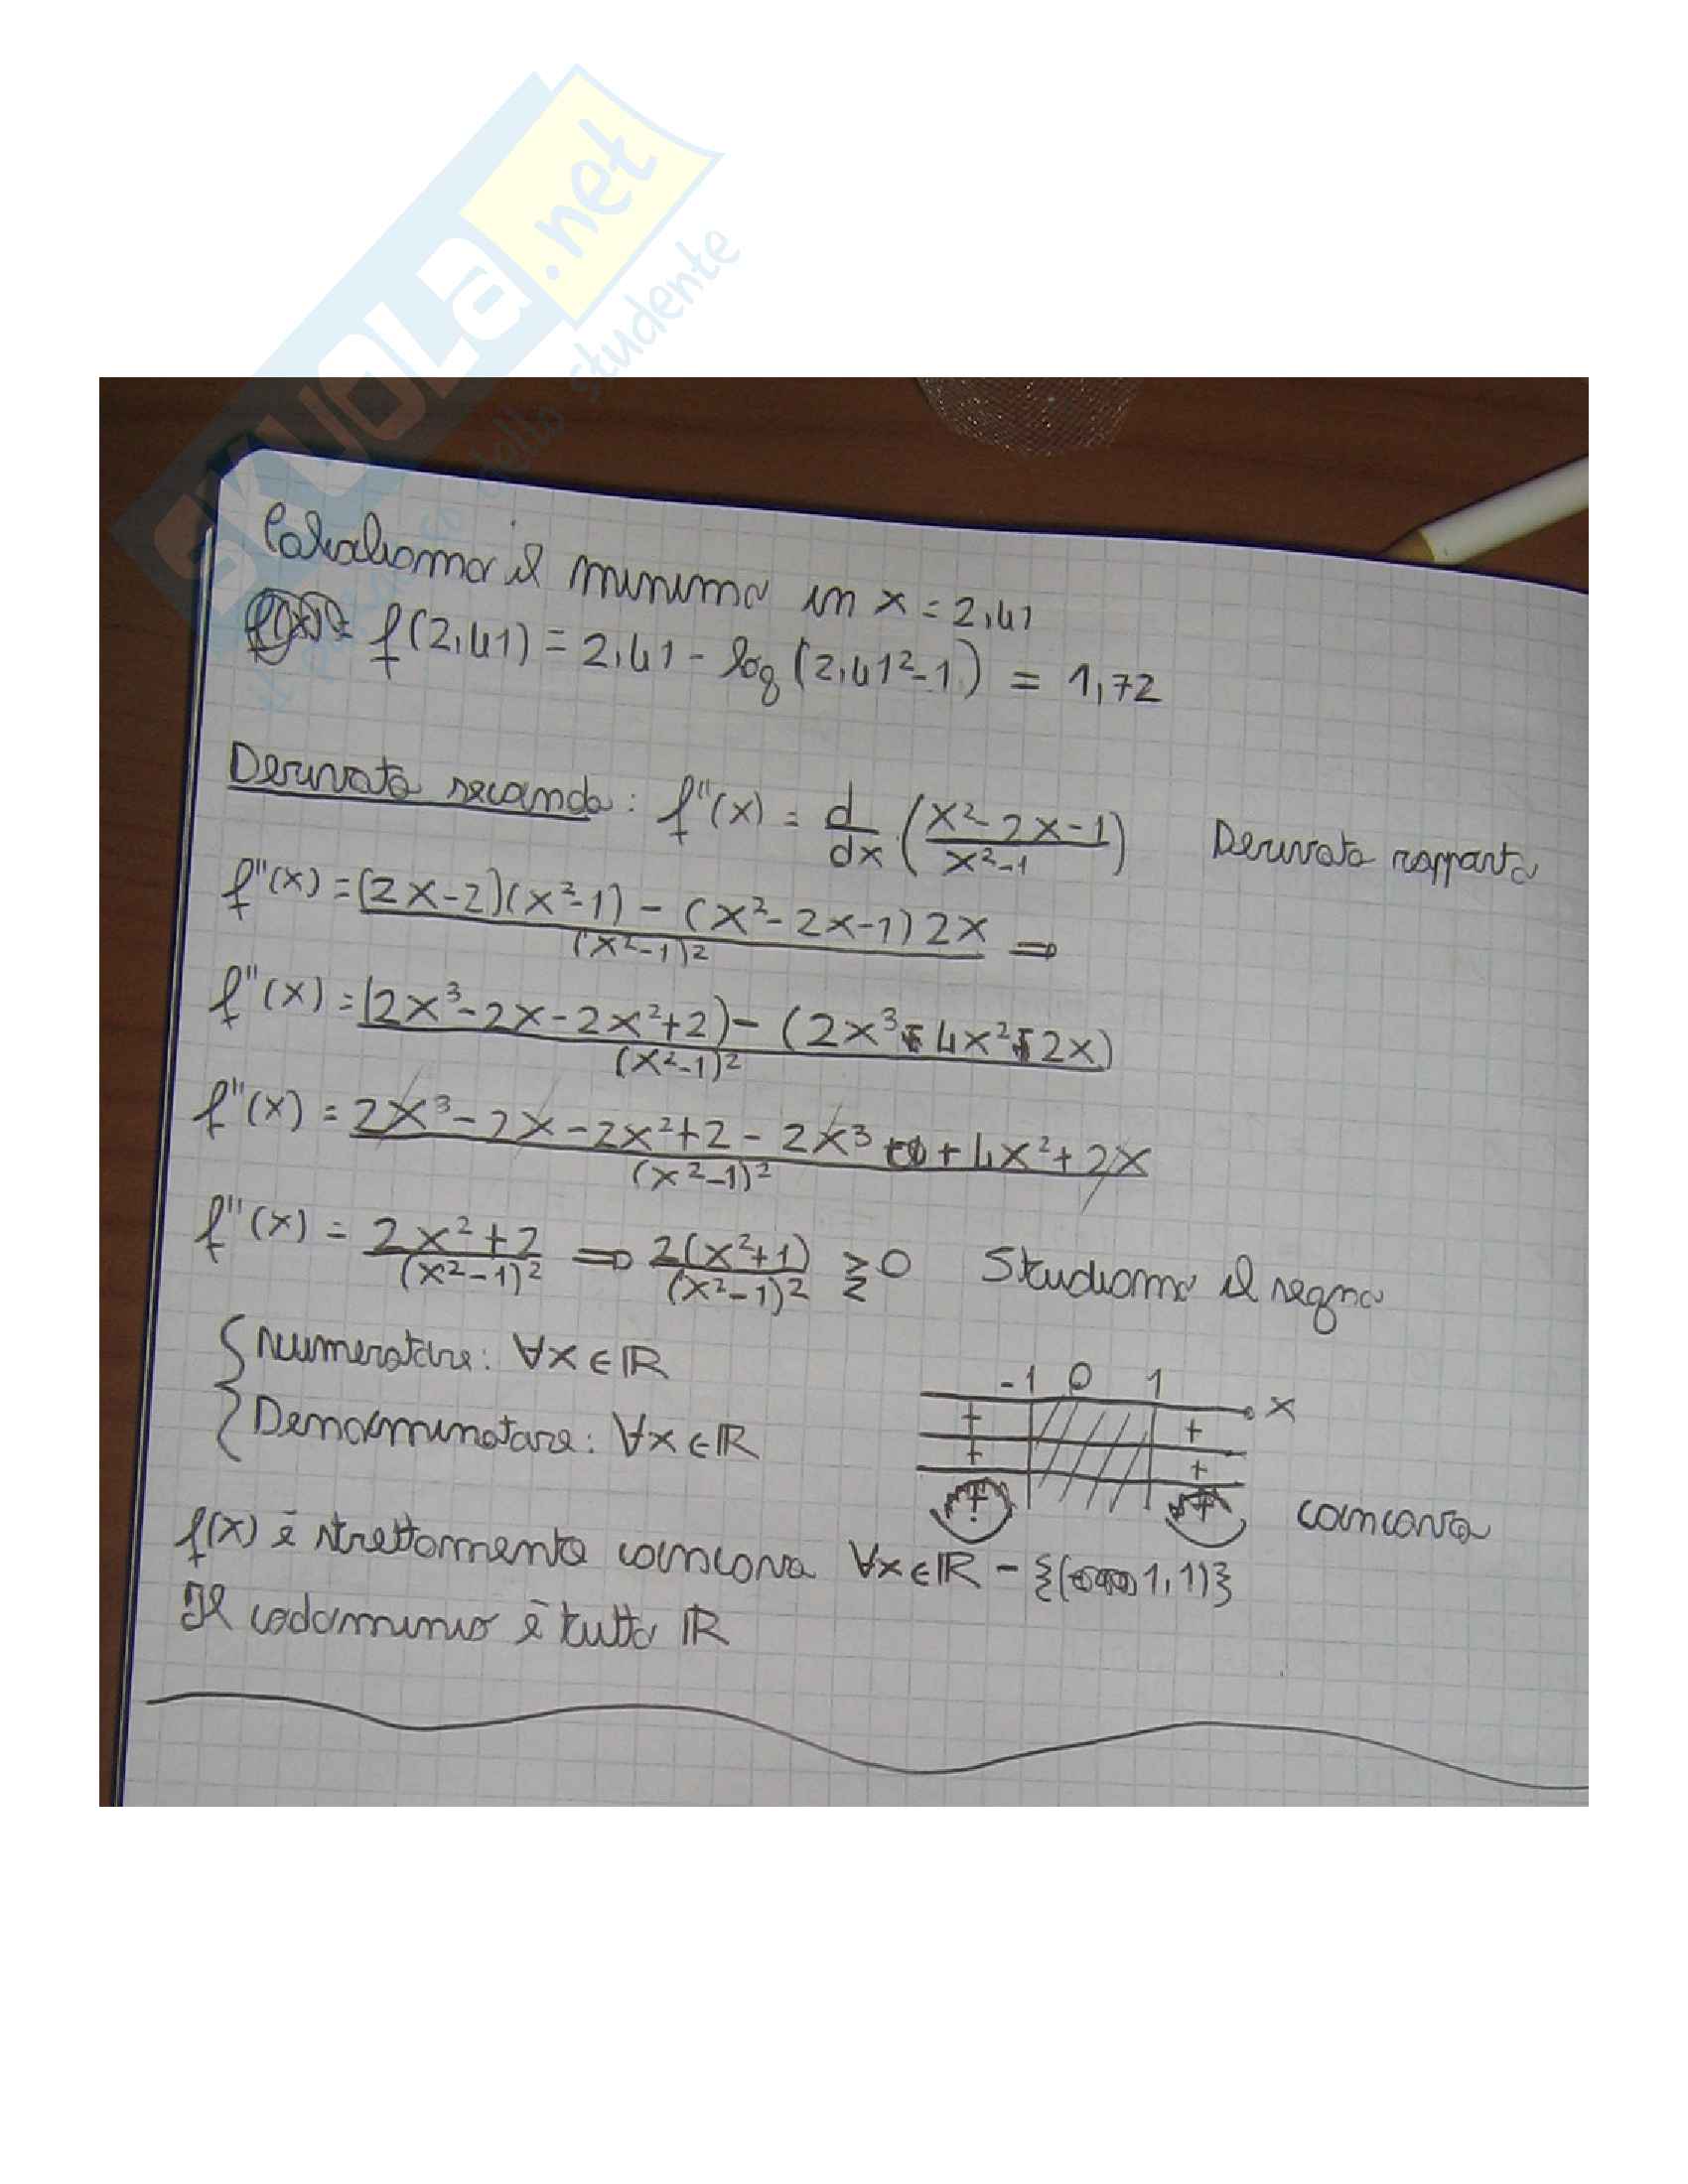 SKUOLA.net
il paradiso dello studente
Calcoliamo il minimo in x = 2,41
f(x) = f(2,41) = 2,41 - log(2,41²-1) = 1,72
Derivata seconda: f''(x) = d/dx (x²-2x-1 / x²-1) Derivata rapporto
f''(x) = (2x-2)(x²-1) - (x²-2x-1)2x / (x²-1)² ⇒
f''(x) = (2x³-2x-2x²+2) - (2x³-4x²-2x) / (x²-1)²
f''(x) = 2x³-2x-2x²+2-2x³+4x²+2x / (x²-1)²
f''(x) = 2x²+2 / (x²-1)² ⇒ 2(x²+1) / (x²-1)² ≷ 0 Studiamo il segno
Numeratore: ∀x∈ℝ
Denominatore: ∀x∈ℝ
-1 0 1 x
+ +
+ +
+ + concava
f(x) è strettamente concava ∀x∈ℝ - {(1,1)}
Il codominio è tutto ℝ